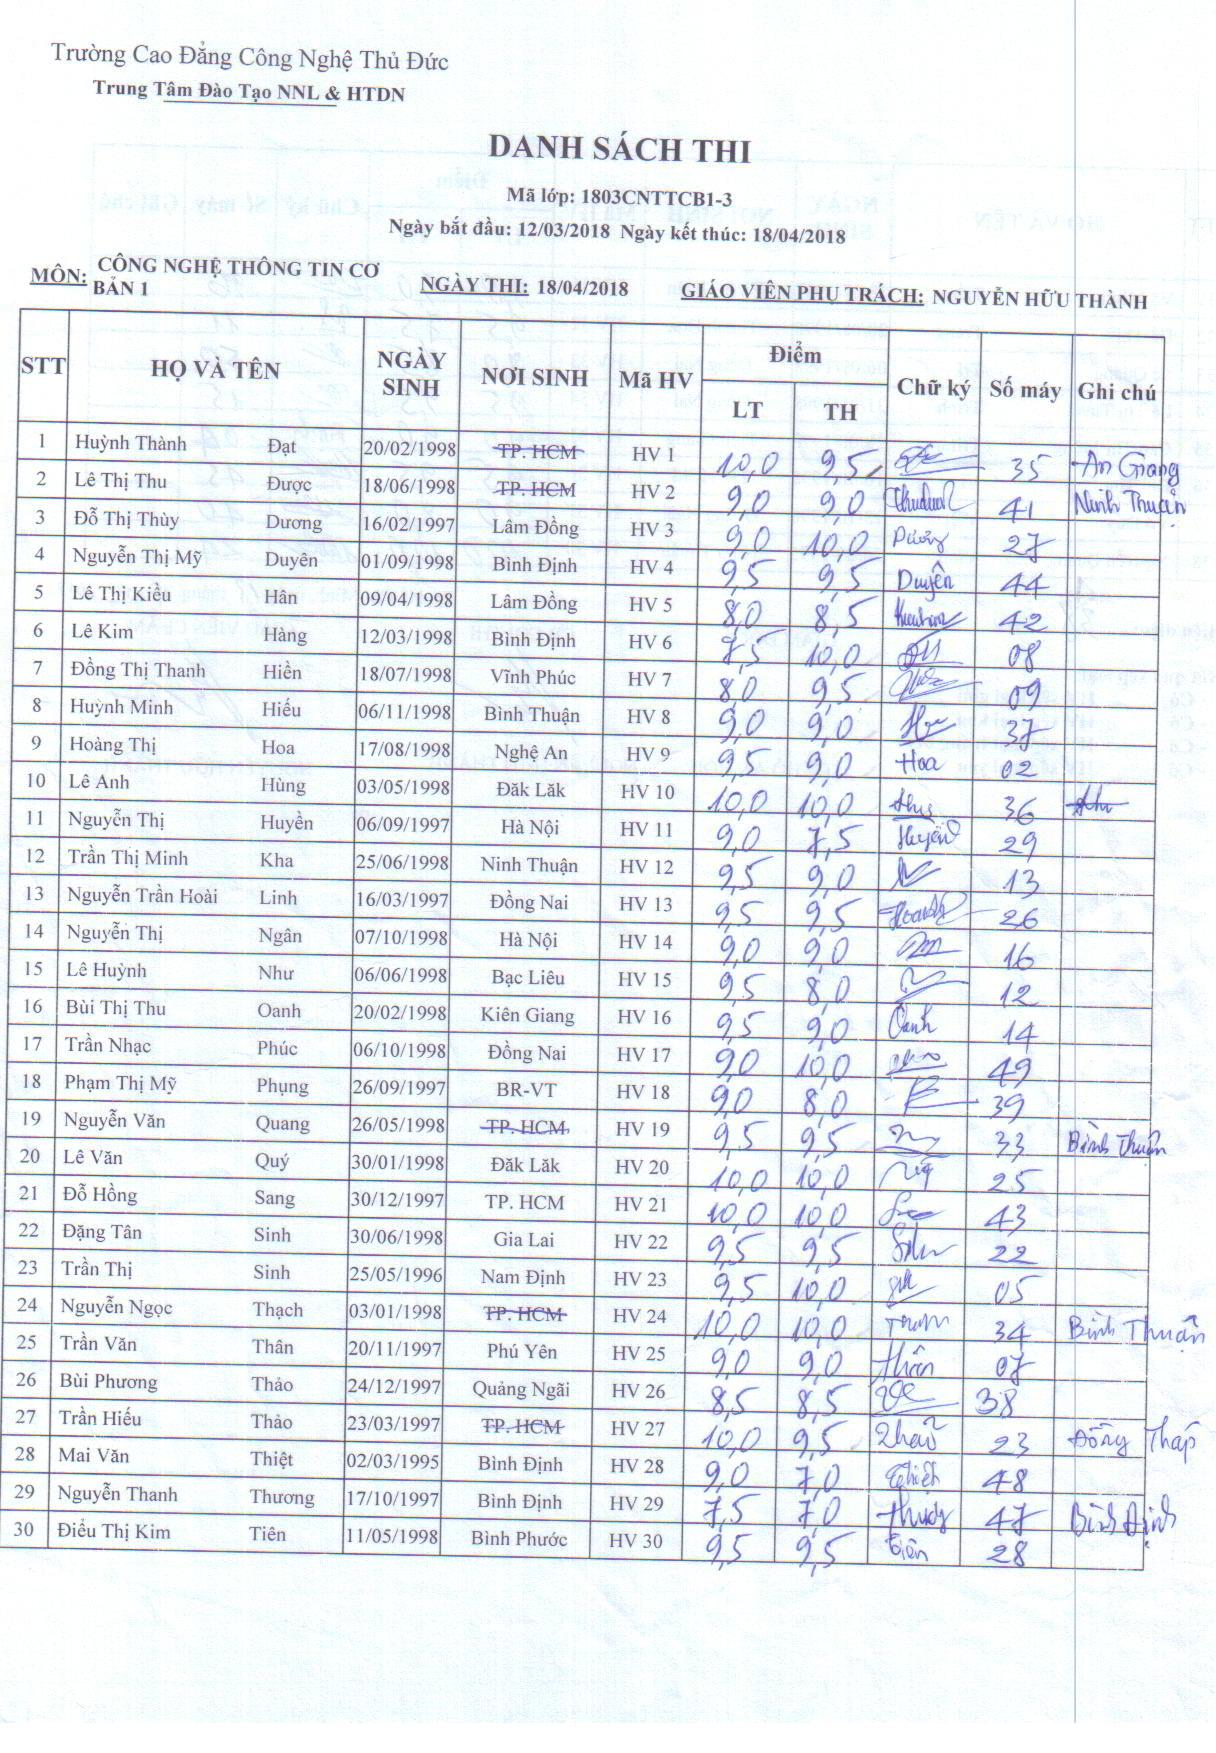 Trường Cao Đẳng Công Nghệ Thủ Đức
Trung Tâm Đào Tạo NNL & HTDN
DANH SÁCH THI
Mã lớp: 1803CNTTCB1-3
Ngày bắt đầu: 12/03/2018 Ngày kết thúc: 18/04/2018
MÔN: CÔNG NGHỆ THÔNG TIN CƠ BẢN 1 NGÀY THI: 18/04/2018 GIÁO VIÊN PHỤ TRÁCH: NGUYỄN HỮU THÀNH
STT HỌ VÀ TÊN NGÀY SINH NƠI SINH Mã HV Điểm Chữ ký Số máy Ghi chú
LT TH
1 Huỳnh Thành Đạt 20/02/1998 TP. HCM HV 1 10,0 9,5 35 An Giang
2 Lê Thị Thu Được 18/06/1998 TP. HCM HV 2 9,0 9,0 41 Ninh Thuận
3 Đỗ Thị Thùy Dương 16/02/1997 Lâm Đồng HV 3 9,0 10,0 Dương 27
4 Nguyễn Thị Mỹ Duyên 01/09/1998 Bình Định HV 4 9,5 9,5 Duyên 44
5 Lê Thị Kiều Hân 09/04/1998 Lâm Đồng HV 5 8,0 8,5 42
6 Lê Kim Hàng 12/03/1998 Bình Định HV 6 7,5 10,0 08
7 Đồng Thị Thanh Hiền 18/07/1998 Vĩnh Phúc HV 7 8,0 9,5 09
8 Huỳnh Minh Hiếu 06/11/1998 Bình Thuận HV 8 9,0 9,0 37
9 Hoàng Thị Hoa 17/08/1998 Nghệ An HV 9 9,5 9,0 Hoa 02
10 Lê Anh Hùng 03/05/1998 Đăk Lăk HV 10 10,0 10,0 36
11 Nguyễn Thị Huyền 06/09/1997 Hà Nội HV 11 9,0 7,5 Huyền 29
12 Trần Thị Minh Kha 25/06/1998 Ninh Thuận HV 12 9,5 9,0 13
13 Nguyễn Trần Hoài Linh 16/03/1997 Đồng Nai HV 13 9,5 9,5 26
14 Nguyễn Thị Ngân 07/10/1998 Hà Nội HV 14 9,0 9,0 16
15 Lê Huỳnh Như 06/06/1998 Bạc Liêu HV 15 9,5 8,0 12
16 Bùi Thị Thu Oanh 20/02/1998 Kiên Giang HV 16 9,5 9,0 Oanh 14
17 Trần Nhạc Phúc 06/10/1998 Đồng Nai HV 17 9,0 10,0 49
18 Phạm Thị Mỹ Phụng 26/09/1997 BR-VT HV 18 9,0 8,0 39
19 Nguyễn Văn Quang 26/05/1998 TP. HCM HV 19 9,5 9,5 33 Bình Thuận
20 Lê Văn Quý 30/01/1998 Đăk Lăk HV 20 10,0 10,0 25
21 Đỗ Hồng Sang 30/12/1997 TP. HCM HV 21 10,0 10,0 43
22 Đặng Tân Sinh 30/06/1998 Gia Lai HV 22 9,5 9,5 22
23 Trần Thị Sinh 25/05/1996 Nam Định HV 23 9,5 10,0 05
24 Nguyễn Ngọc Thạch 03/01/1998 TP. HCM HV 24 10,0 10,0 34 Bình Thuận
25 Trần Văn Thân 20/11/1997 Phú Yên HV 25 9,0 9,0 Thân 07
26 Bùi Phương Thảo 24/12/1997 Quảng Ngãi HV 26 8,5 8,5 38
27 Trần Hiếu Thảo 23/03/1997 TP. HCM HV 27 10,0 9,5 Thảo 23 Đồng Tháp
28 Mai Văn Thiệt 02/03/1995 Bình Định HV 28 9,0 7,0 Thiệt 48
29 Nguyễn Thanh Thương 17/10/1997 Bình Định HV 29 7,5 7,0 47 Bình Định
30 Điểu Thị Kim Tiên 11/05/1998 Bình Phước HV 30 9,5 9,5 Tiên 28